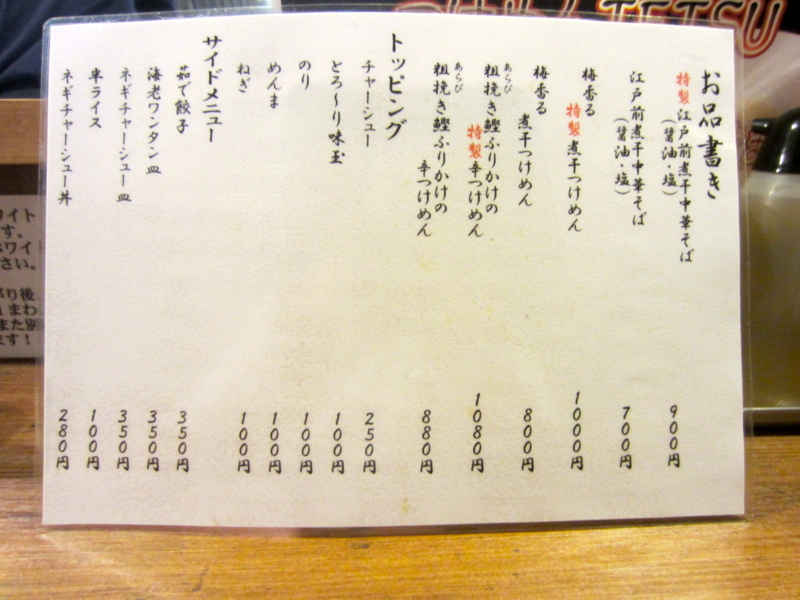 お品書き
特製 江戸前煮干中華そば
（醤油・塩）
900円
江戸前煮干中華そば
（醤油・塩）
700円
梅香る
特製 煮干つけめん
1000円
梅香る
煮干つけめん
800円
あらび
粗挽き鰹ふりかけの
特製 辛つけめん
1080円
あらび
粗挽き鰹ふりかけの
辛つけめん
880円
トッピング
チャーシュー 250円
とろ〜り味玉 100円
のり 100円
めんま 100円
ねぎ 100円
サイドメニュー
茹で餃子 350円
海老ワンタン皿 350円
ネギチャーシュー皿 350円
半ライス 100円
ネギチャーシュー丼 280円
TETSU